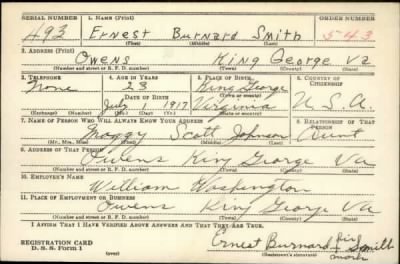 SERIAL NUMBER 1. NAME (Print) ORDER NUMBER
493 Ernest Burnard Smith 543
(First) (Middle) (Last)
2. ADDRESS (Print)
Owens King George Va
(Number and street or R. F. D. number) (Town) (County) (State)
3. TELEPHONE 4. AGE IN YEARS 5. PLACE OF BIRTH 6. COUNTRY OF CITIZENSHIP
None 23 King George
DATE OF BIRTH (Town or county)
July 1917 Virginia U.S.A.
(Exchange) (Number) (Mo.) (Day) (Yr.) (State or country)
7. NAME OF PERSON WHO WILL ALWAYS KNOW YOUR ADDRESS 8. RELATIONSHIP OF THAT PERSON
Maggy Scott Johnson Aunt
(Mr., Mrs., Miss) (First) (Middle) (Last)
9. ADDRESS OF THAT PERSON
Owens King George Va
(Number and street or R. F. D. number) (Town) (County) (State)
10. EMPLOYER'S NAME
William Washington
11. PLACE OF EMPLOYMENT OR BUSINESS
Owens King George Va
(Number and street or R. F. D. number) (Town) (County) (State)
I AFFIRM THAT I HAVE VERIFIED ABOVE ANSWERS AND THAT THEY ARE TRUE.
REGISTRATION CARD
D. S. S. FORM 1
Ernest Burnard his Smith
mark
(over) (Registrant's signature)